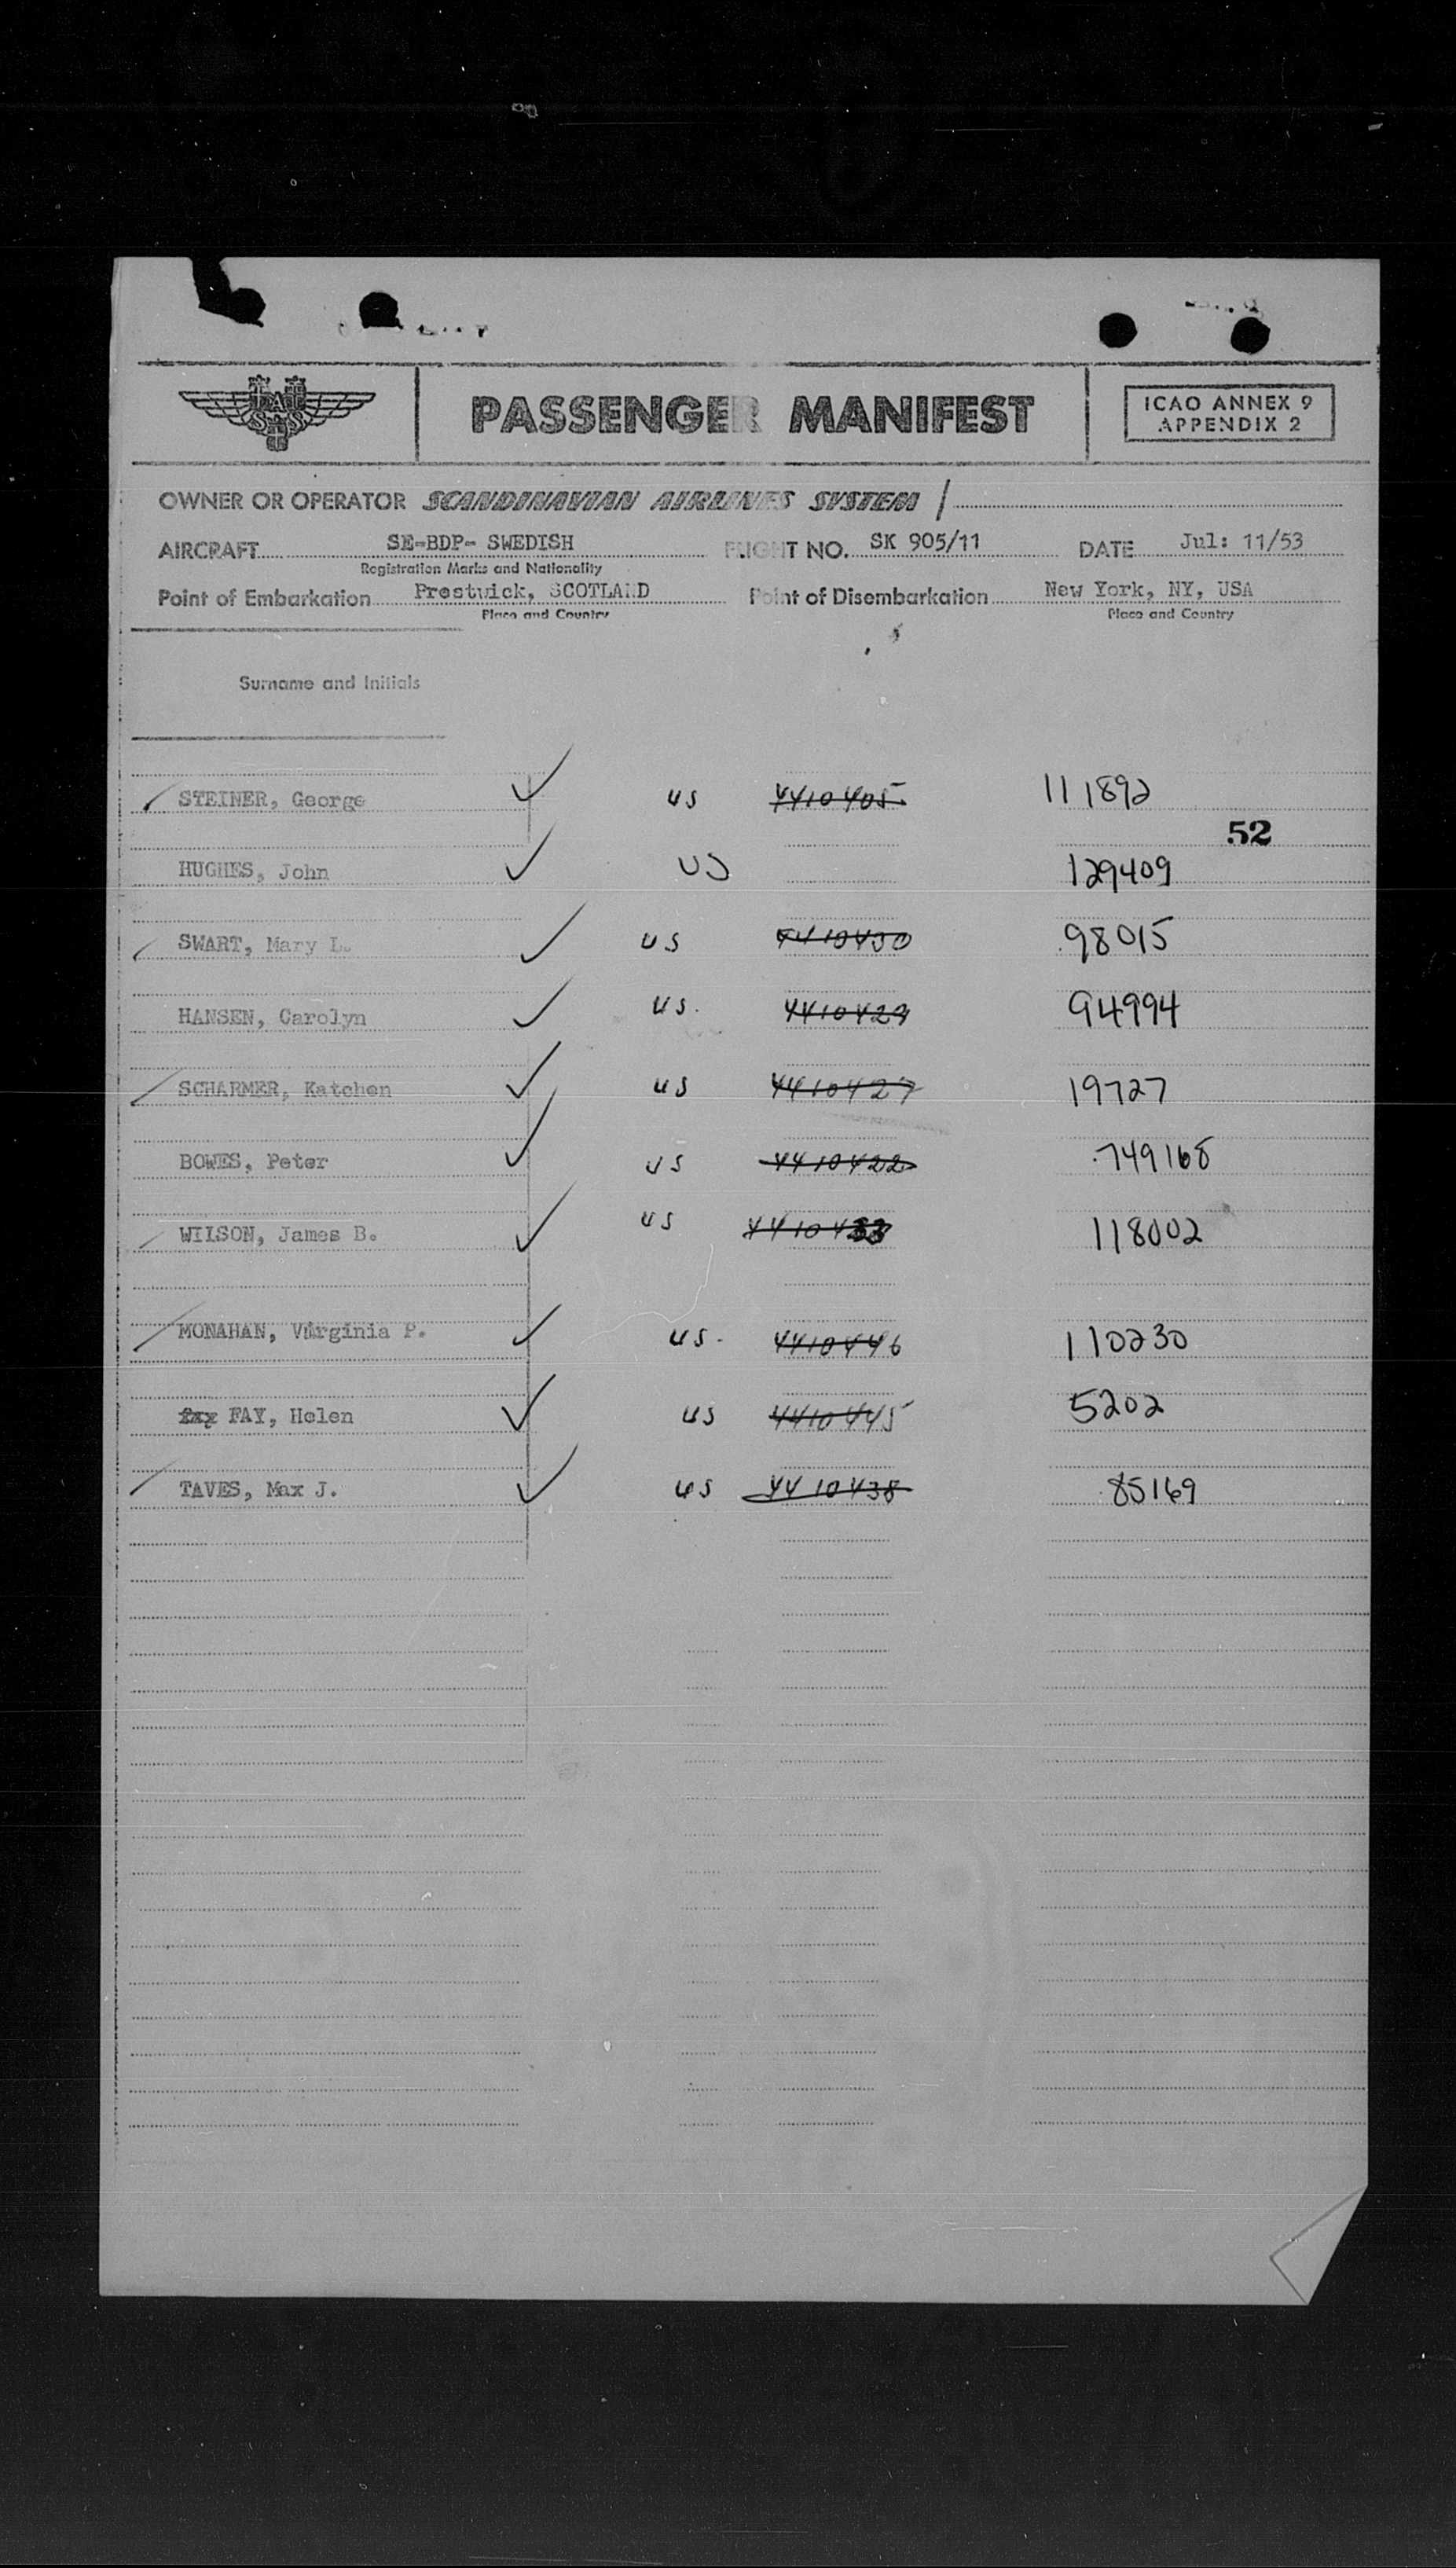 PASSENGER MANIFEST
ICAO ANNEX 9
APPENDIX 2
OWNER OR OPERATOR SCANDINAVIAN AIRLINES SYSTEM /
AIRCRAFT SE-BDP- SWEDISH FLIGHT NO. SK 905/11 DATE Jul: 11/53
Registration Marks and Nationality
Point of Embarkation Prestwick, SCOTLAND Point of Disembarkation New York, NY, USA
Place and Country Place and Country
Surname and Initials
STEINER, George ✓ US 4410405 111892
52
HUGHES, John ✓ US 129409
SWART, Mary L. ✓ US 4410430 98015
HANSEN, Carolyn ✓ US. 4410429 94994
SCHARMER, Katchen ✓ US 4410427 19727
BOWES, Peter ✓ US 4410422 749168
WILSON, James B. ✓ US 118002
MONAHAN, Virginia P. ✓ US. 4410446 110230
fxy FAY, Helen ✓ US 4410445 5202
TAVES, Max J. ✓ US 4410438 85169